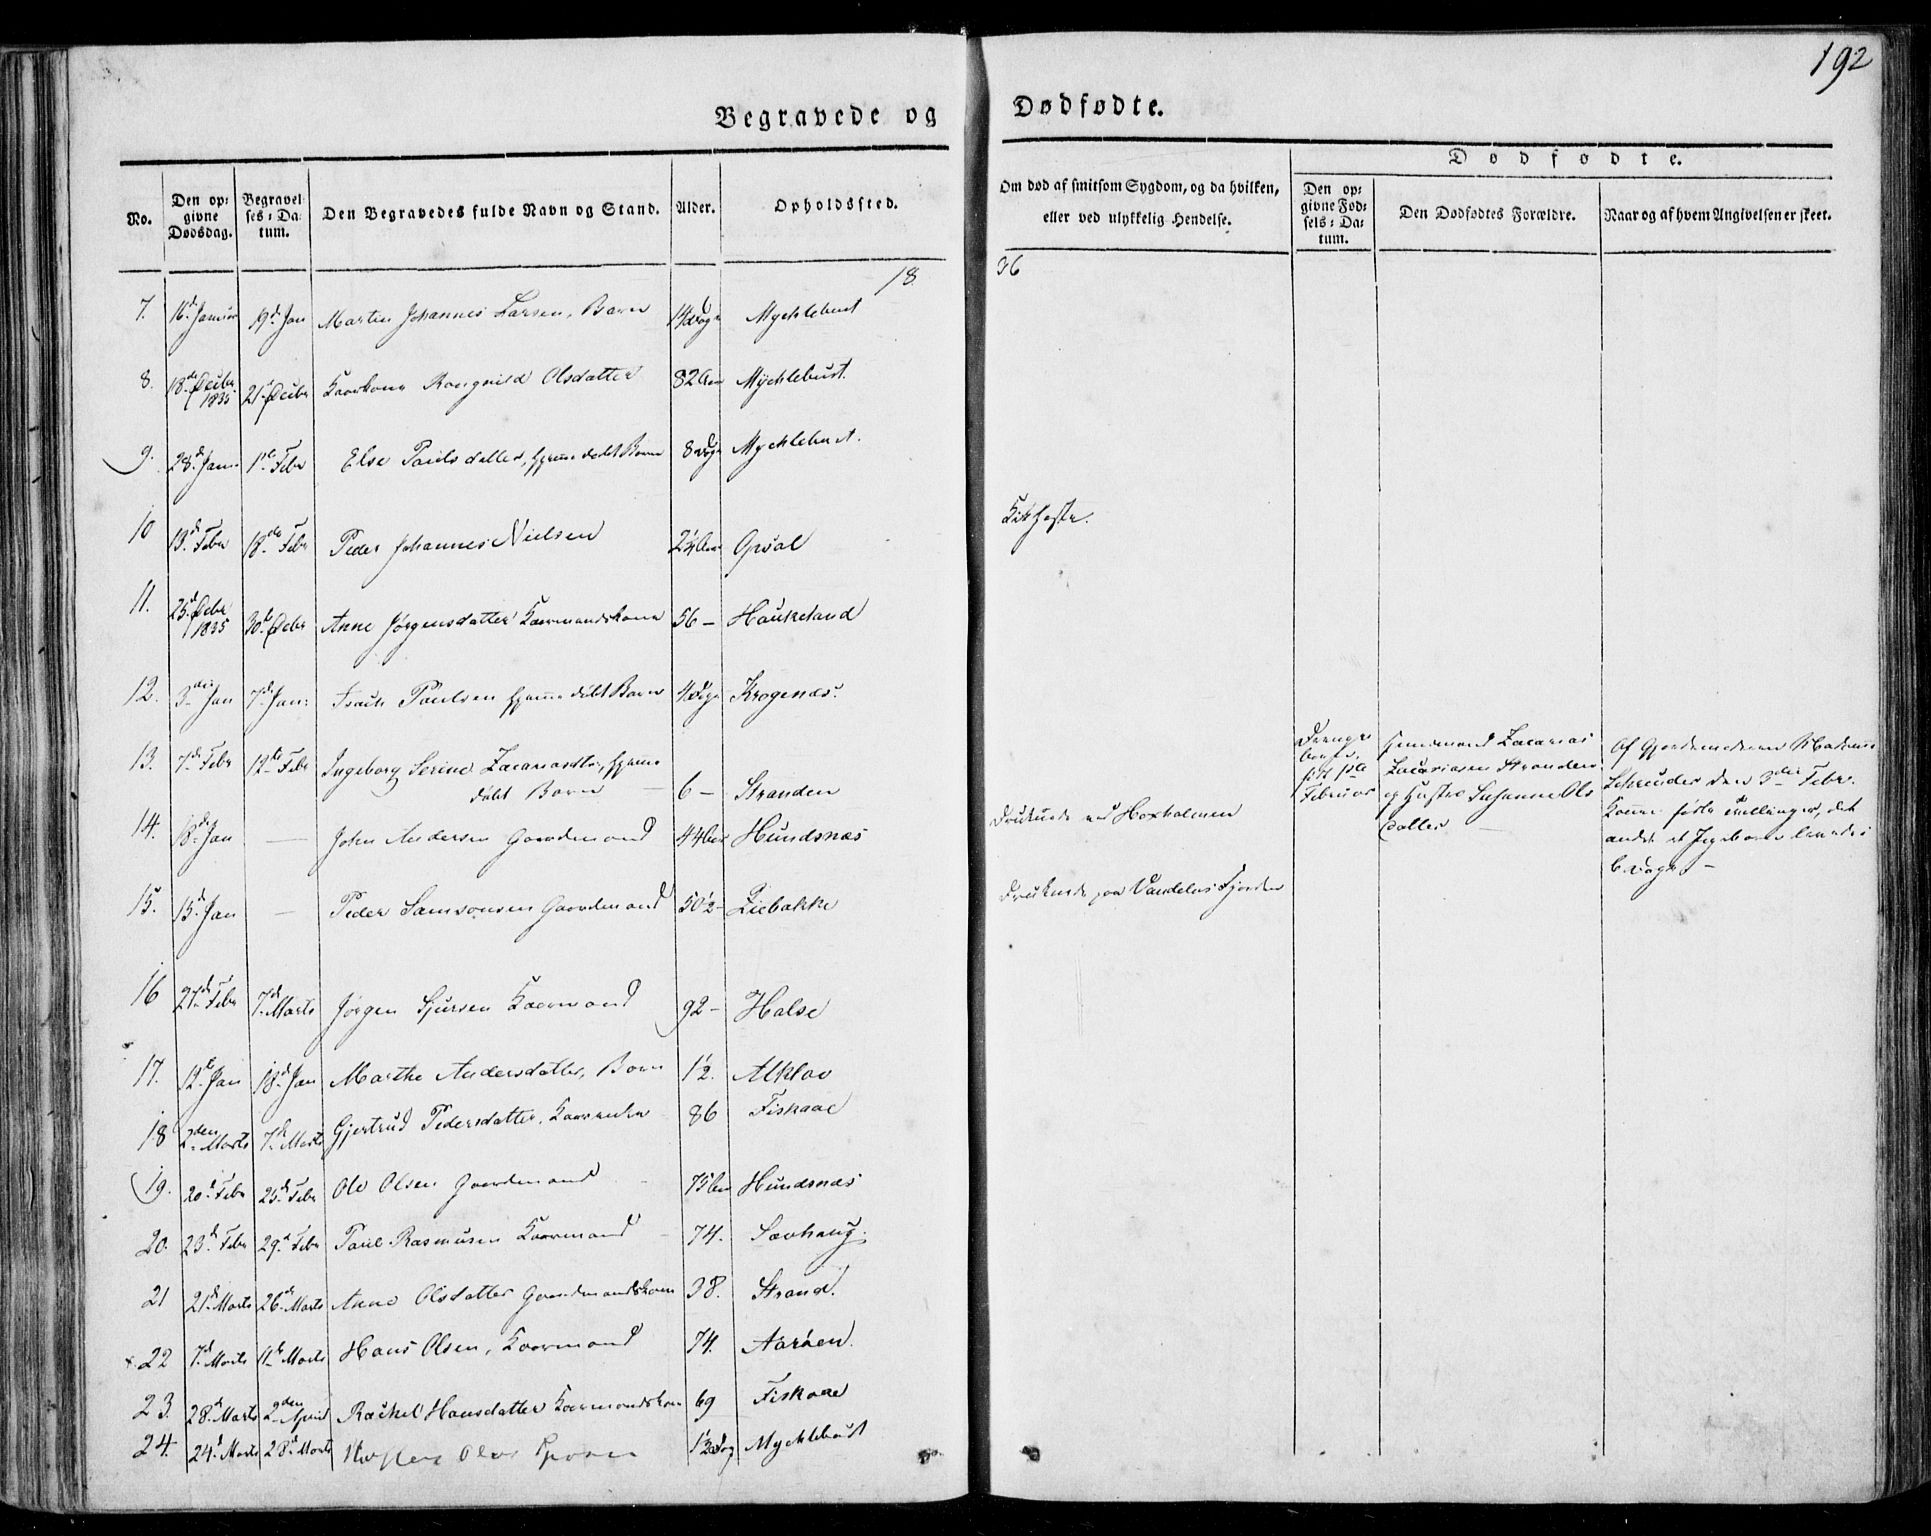 192
Begravede og Dødfødte.
No.
Den op-
givne
Dødsdag.
Begravel-
ses-Da-
tum.
Den Begravedes fulde Navn og Stand.
Alder.
Opholdssted.
Om død af smitsom Sygdom, og da hvilken,
eller ved ulykkelig Hendelse.
Dødfødte.
Den op-
givne Fød-
sels-Da-
tum.
Den Dødfødtes Forældre.
Naar og af hvem Angivelsen er skeet.
18 36
7. 16d Januar 19d Jan Martin Johannes Larsen, Barn 14 Mycklebust
8. 18de Decbr 1835 21 Decbr Kaarkone Rangnild Olsdatter 82 Aar Mycklebust.
9. 28d Jan. 1te Febr Else Paulsdatter, hjemmedøbt Barn 8 Mycklebust.
10 13d Febr 18de Febr Peder Johannes Nielsen Opsal Kikhoste.
11. 25d Decbr 1835 30d Decbr Anne Jørgensdatter Kaarmandskone 56 – Haukeland
12. 3die Jan 7d Jan: Isach Paulsen hjemmedøbt Barn 4 Krogenæs.
13. 7d Febr 12te Febr Ingeborg Serine Zacariasdtr, hjemme
døbt Barn – 6 – Stranden
Drenge
født 1ste
Februar
Zacarias
Zacariasen Stranden
og Hustru Susanne Ols
datter –
Af Gjordemoderen Madame
Schreuder den 3die Febr.
Konen fødte Tvillinger, det
andet et Pigebarn levede i
6 Døgn –
14. 18d Jan – John Andersen Gaardmand 44 Aar Hundsnæs Druknede ved Hoxholmen
15. 15d Jan – Peder Samsonsen Gaardmand 50½ – Liebakke Druknede paa Vandelvs Fjorden
16 27d Febr 7de Marts Jørgen Sjursen Kaarmand 92 – Halse
17. 12te Jan 18d Jan Marthe Andersdatter, Barn ½. Alklov
18 2den Marts 7de Marts Gjertrud Pedersdatter, Kaarenke 86 Fiskaae
19. 20d Febr 25d Febr Ole Olsen Gaardmand 75 Aar Hundsnæs
20. 23d Febr 29d Febr Paul Rasmusen Kaarmand – 74. Sævhaug.
21 21d Marts 26d Marts Anne Olsdatter Gaardmandskone 38. Strand.
22 7d Marts 11te Marts Hans Olsen, Kaarmand 74. Aarøen.
23. 28d Marts 2den April Rachel Hansdatter Kaarmandskone 69 Fiskaae
24. 24d Marts 28d Marts Olai Mycklebust